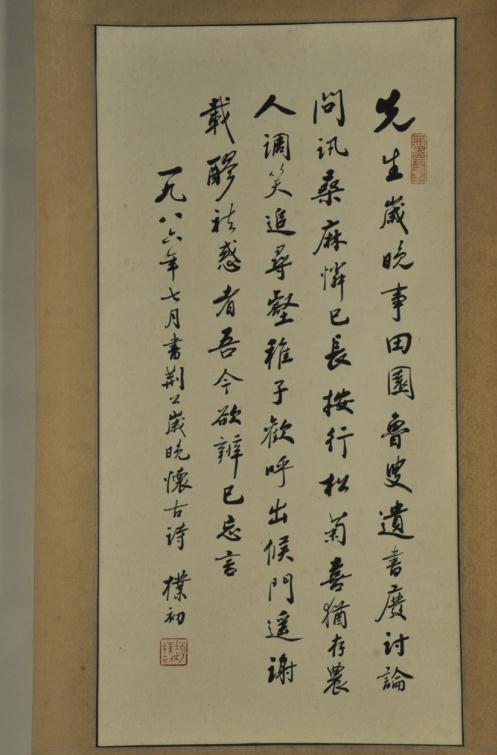 先生歲晚事田園魯叟遺書廢討論
問訊桑麻憐已長按行松菊喜猶存農
人調笑追尋壑稚子歡呼出候門遥謝
載醪祛惑者吾今欲辨已忘言
一九八六年七月書荆公歲晚懷古詩 樸初